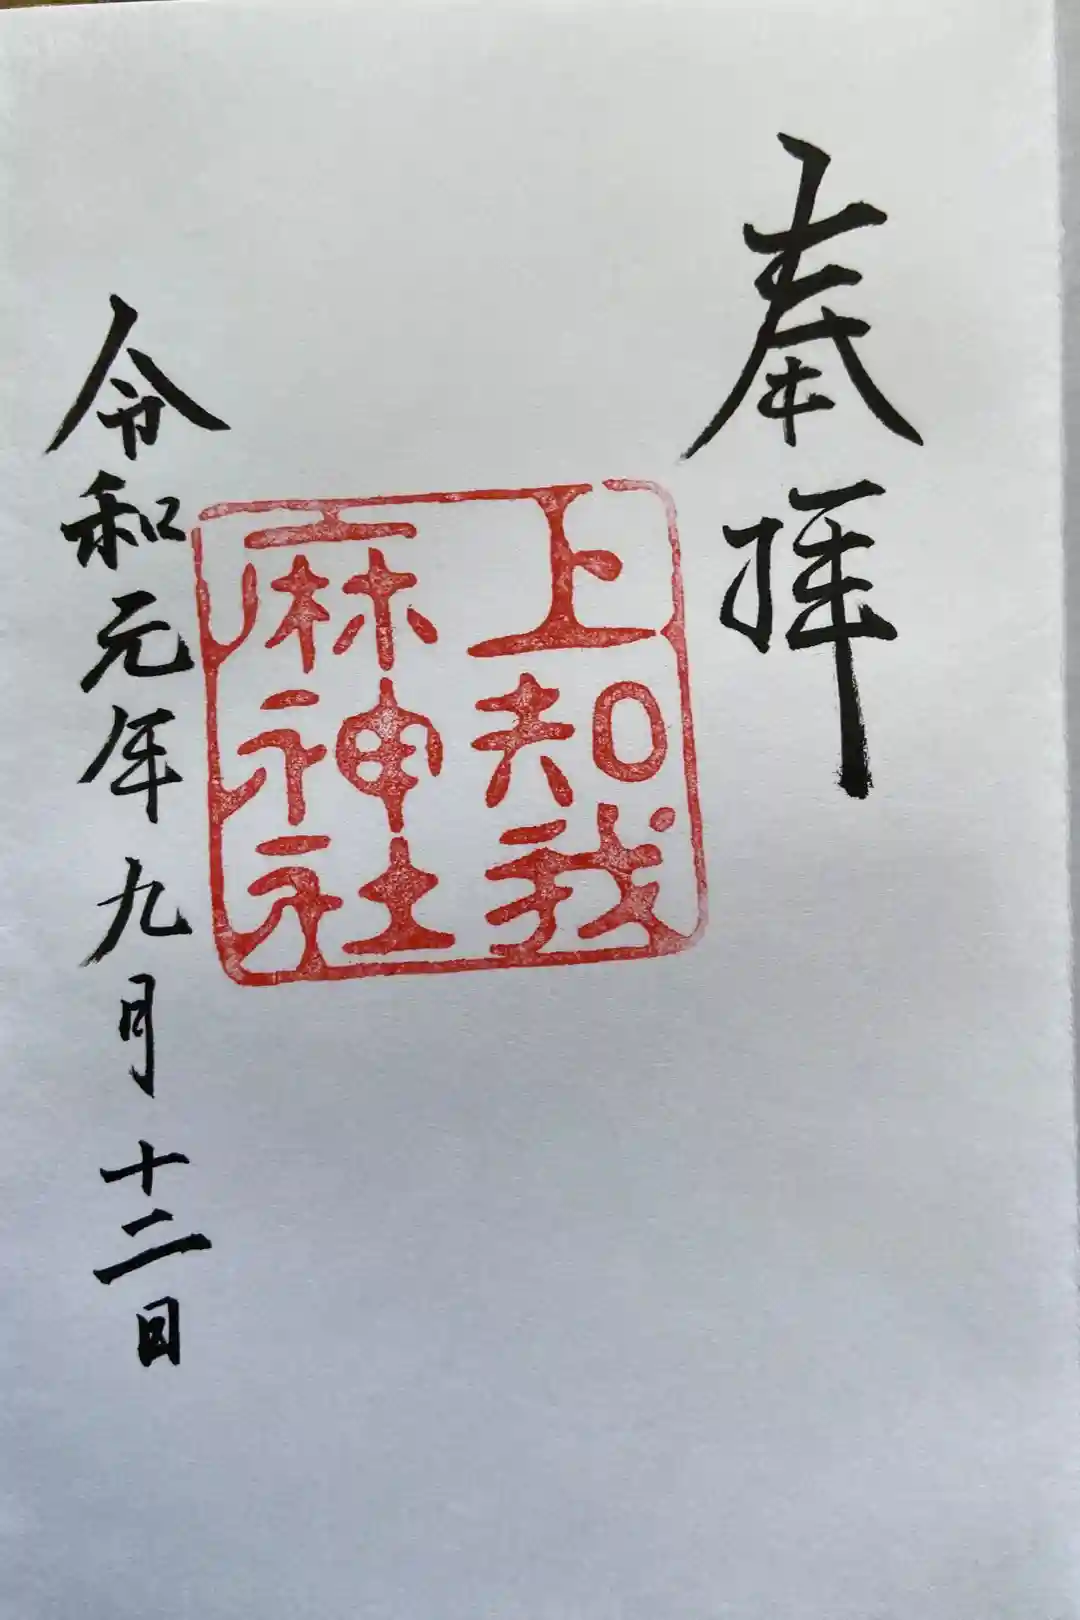 奉拝
上知我
麻神社
令和元年九月十二日